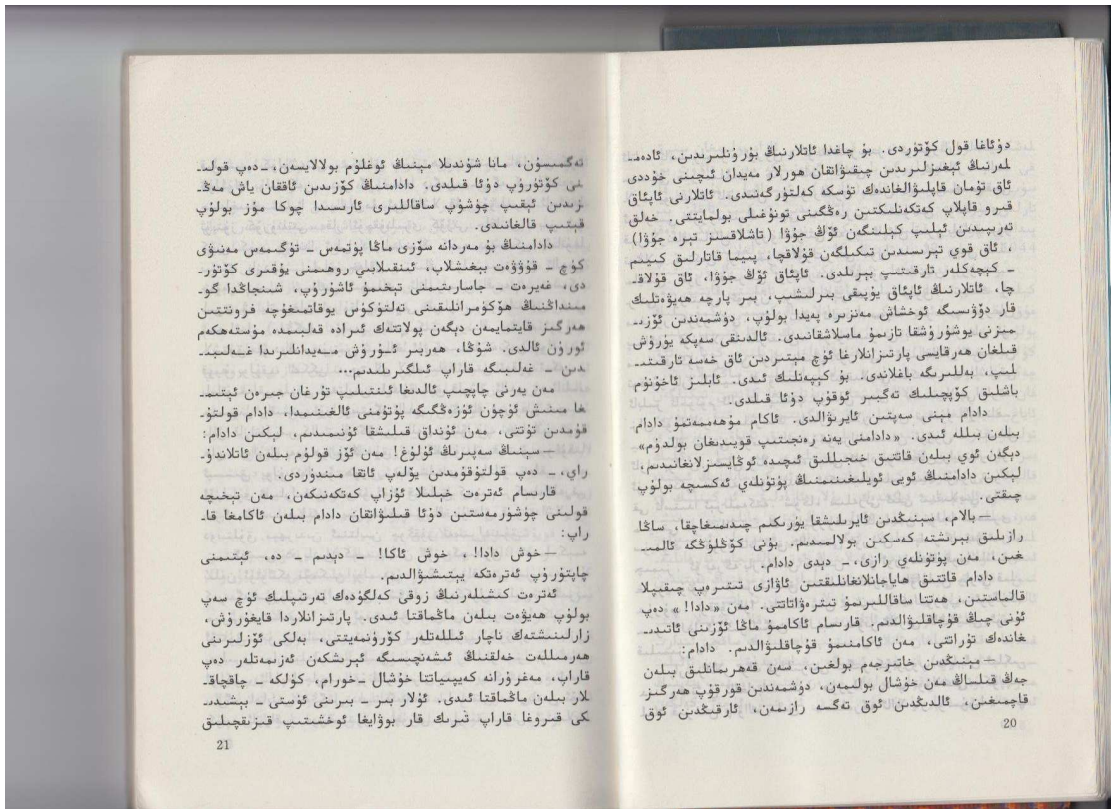 دۇئاغا قول كۆتۈردى. بۇ چاغدا ئاتلارنىڭ بۇرۇنلىرىدىن، ئادەم-
لەرنىڭ ئېغىزلىرىدىن چىقىۋاتقان ھورلار مەيدان ئىچىنى خۇددى
ئاق تۇمان قاپلىۋالغاندەك تۈسكە كەلتۈرگەنىدى. ئاتلارنى ئاپئاق
قىرو قاپلاپ كەتكەنلىكتىن رەڭگىنى تونۇغىلى بولمايتتى. خەلق
تەرىپىدىن ئېلىپ كېلىنگەن ئۆڭ جۇۋا (تاشلاقسىز تېرە جۇۋا)
، ئاق قوي تېرىسىدىن تىكىلگەن قۇلاقچا، پىيما قاتارلىق كىيىم
- كېچەكلەر تارقىتىپ بېرىلدى. ئاپئاق ئۆڭ جۇۋا، ئاق قۇلاق-
چا، ئاتلارنىڭ ئاپئاق يۇپىقى بىرلىشىپ، بىر پارچە ھەيۋەتلىك
قار دۆۋىسىگە ئوخشاش مەنزىرە پەيدا بولۇپ، دۈشمەندىن ئۆزى-
مىزنى يوشۇرۇشقا تازىمۇ ماسلاشقانىدى. ئالدىنقى سەپكە يۈرۈش
قىلغان ھەرقايسى پارتىزانلارغا ئۈچ مېتىردىن ئاق خەسە تارقىتى-
لىپ، بەللىرىگە باغلاندى. بۇ كېپەنلىك ئىدى. ئابلىز ئاخۇنۇم
باشلىق كۆپچىلىك تەگبىر ئوقۇپ دۇئا قىلدى.
دادام مېنى سەپتىن ئايرىۋالدى. ئاكام مۇھەممەتمۇ دادام
بىلەن بىللە ئىدى. «دادامنى يەنە رەنجىتىپ قويىدىغان بولدۇم»
دېگەن ئوي بىلەن قاتتىق خىجىللىق ئىچىدە ئوڭايسىزلانغانىدىم،
لېكىن دادامنىڭ ئويى ئويلىغىنىمنىڭ پۈتۈنلەي ئەكسىچە بولۇپ
چىقتى.
—بالام، سېنىڭدىن ئايرىلىشقا يۈرىكىم چىدىمىغاچقا، ساڭا
رازىلىق بېرىشتە كەسكىن بولالمىدىم. بۇنى كۆڭلۈڭگە ئالمى-
غىن، مەن پۈتۈنلەي رازى، - دېدى دادام.
دادام قاتتىق ھاياجانلانغانلىقتىن ئاۋازى تىترەپ چىقىپلا
قالماستىن، ھەتتا ساقاللىرىمۇ تىترەۋاتاتتى. مەن «دادا!» دەپ
ئۇنى چىڭ قۇچاقلىۋالدىم. قارىسام ئاكاممۇ ماڭا ئۆزىنى ئاتىدى-
غاندەك تۇراتتى، مەن ئاكامنىمۇ قۇچاقلىۋالدىم. دادام:
—مېنىڭدىن خاتىرجەم بولغىن، سەن قەھرىمانلىق بىلەن
جەڭ قىلساڭ مەن خۇشال بولىمەن، دۈشمەندىن قورقۇپ ھەرگىز
قاچمىغىن، ئالدىڭدىن ئوق تەگسە رازىمەن، ئارقىڭدىن ئوق
20
تەگمىسۇن، مانا شۇندىلا مېنىڭ ئوغلۇم بولالايسەن، - دەپ قولى-
نى كۆتۈرۈپ دۇئا قىلدى. دادامنىڭ كۆزىدىن ئاققان ياش مەڭ-
زىدىن ئېقىپ چۈشۈپ ساقاللىرى ئارىسىدا چوكا مۇز بولۇپ
قېتىپ قالغانىدى.
دادامنىڭ بۇ مەردانە سۆزى ماڭا پۈتمەس - تۈگىمەس مەنىۋى
كۈچ - قۇۋۋەت بېغىشلاپ، ئىنقىلابىي روھىمنى يۇقىرى كۆتۈر-
دى، غەيرەت - جاسارىتىمنى تېخىمۇ ئاشۇرۇپ، شىنجاڭدا گو-
مىنداڭنىڭ ھۆكۈمرانلىقىنى تەلتۆكۈس يوقاتمىغۇچە فرونتتىن
ھەرگىز قايتمايمەن دېگەن پولاتتەك ئىرادە قەلبىمدە مۇستەھكەم
ئورۇن ئالدى. شۇڭا، ھەربىر ئۇرۇش مەيدانلىرىدا غەلىبى-
دىن غەلىبىگە قاراپ ئىلگىرىلىدىم...
مەن يەرنى چاپچىپ ئالدىغا ئىنتىلىپ تۇرغان جىرەن ئېتىم-
غا مىنىش ئۈچۈن ئۈزەڭگىگە پۇتۇمنى ئالغىنىمدا، دادام قولتۇ-
قۇمدىن تۇتتى، مەن ئۇنداق قىلىشقا ئۇنىمىدىم، لېكىن دادام:
—سېنىڭ سەپىرىڭ ئۇلۇغ! مەن ئۆز قولۇم بىلەن ئاتلاندۇ-
راي، - دەپ قولتۇقۇمدىن يۆلەپ ئاتقا مىندۈردى.
قارىسام ئەترەت خېلىلا ئۇزاپ كەتكەنىكەن، مەن تېخىچە
قولىنى چۈشۈرمەستىن دۇئا قىلىۋاتقان دادام بىلەن ئاكامغا قا-
راپ:
—خوش دادا!، خوش ئاكا! - دېدىم - دە، ئېتىمنى
چاپتۇرۇپ ئەترەتكە يېتىشىۋالدىم.
ئەترەت كىشىلەرنىڭ زوقى كەلگۈدەك تەرتىپلىك ئۈچ سەپ
بولۇپ ھەيۋەت بىلەن ماڭماقتا ئىدى. پارتىزانلاردا قايغۇرۇش،
زارلىنىشتەك ناچار ئىللەتلەر كۆرۈنمەيتتى، بەلكى ئۆزلىرىنى
ھەرمىللەت خەلقنىڭ ئىشەنچىسىگە ئېرىشكەن ئەزىمەتلەر دەپ
قاراپ، مەغرۇرانە كەيپىياتتا خۇشال - خورام، كۈلكە - چاقچاق-
لار بىلەن ماڭماقتا ئىدى. ئۇلار بىر - بىرىنى ئۈستى - بېشىدى-
كى قىروغا قاراپ تىرىك قار بوۋايغا ئوخشىتىپ قىزىقچىلىق
21